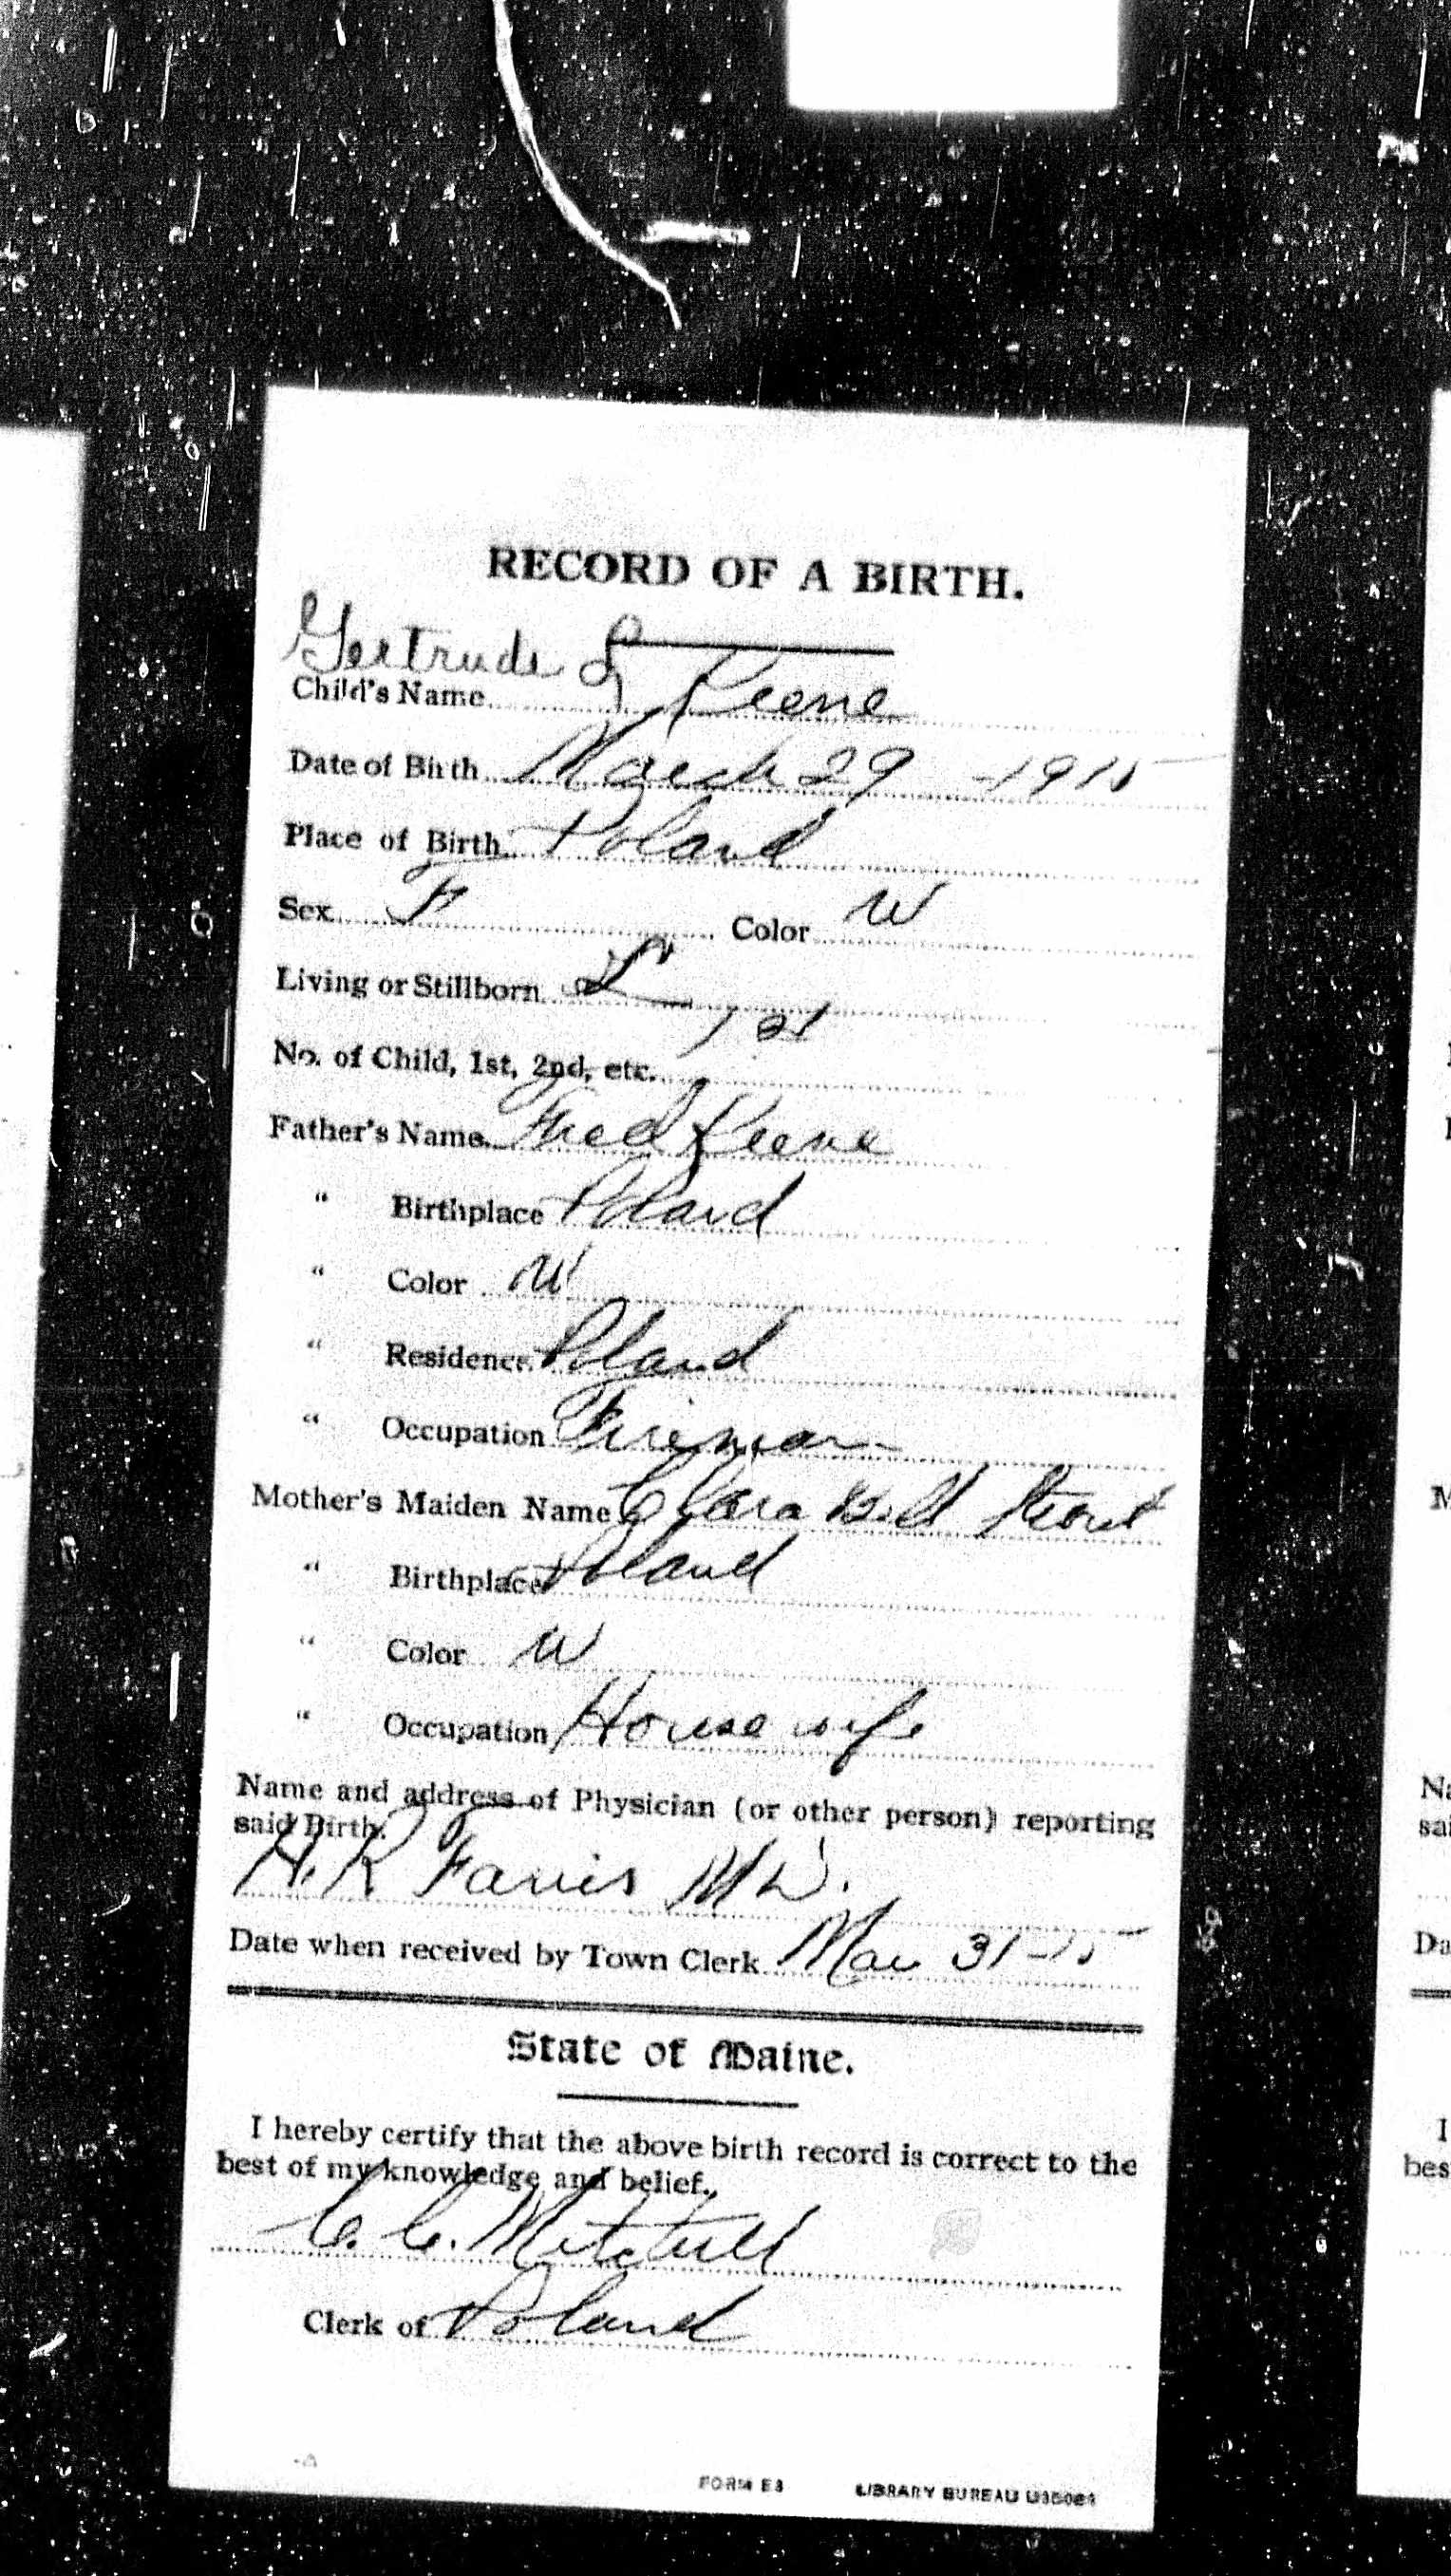 RECORD OF A BIRTH.
Gertrude L
Child's Name Keene
Date of Birth March 29 - 1915
Place of Birth Poland
Sex F Color W
Living or Stillborn L
No. of Child, 1st, 2nd, etc. 1st
Father's Name Fred Keene
" Birthplace Poland
" Color W
" Residence Poland
" Occupation Fireman
Mother's Maiden Name Clara Bell Strout
" Birthplace Poland
" Color W
" Occupation House wife
Name and address of Physician (or other person) reporting
said Birth.
H. R Farris MD.
Date when received by Town Clerk Mar 31-15
State of Maine.
I hereby certify that the above birth record is correct to the
best of my knowledge and belief.
C. C. Mitchell
Clerk of Poland
FORM E3 LIBRARY BUREAU